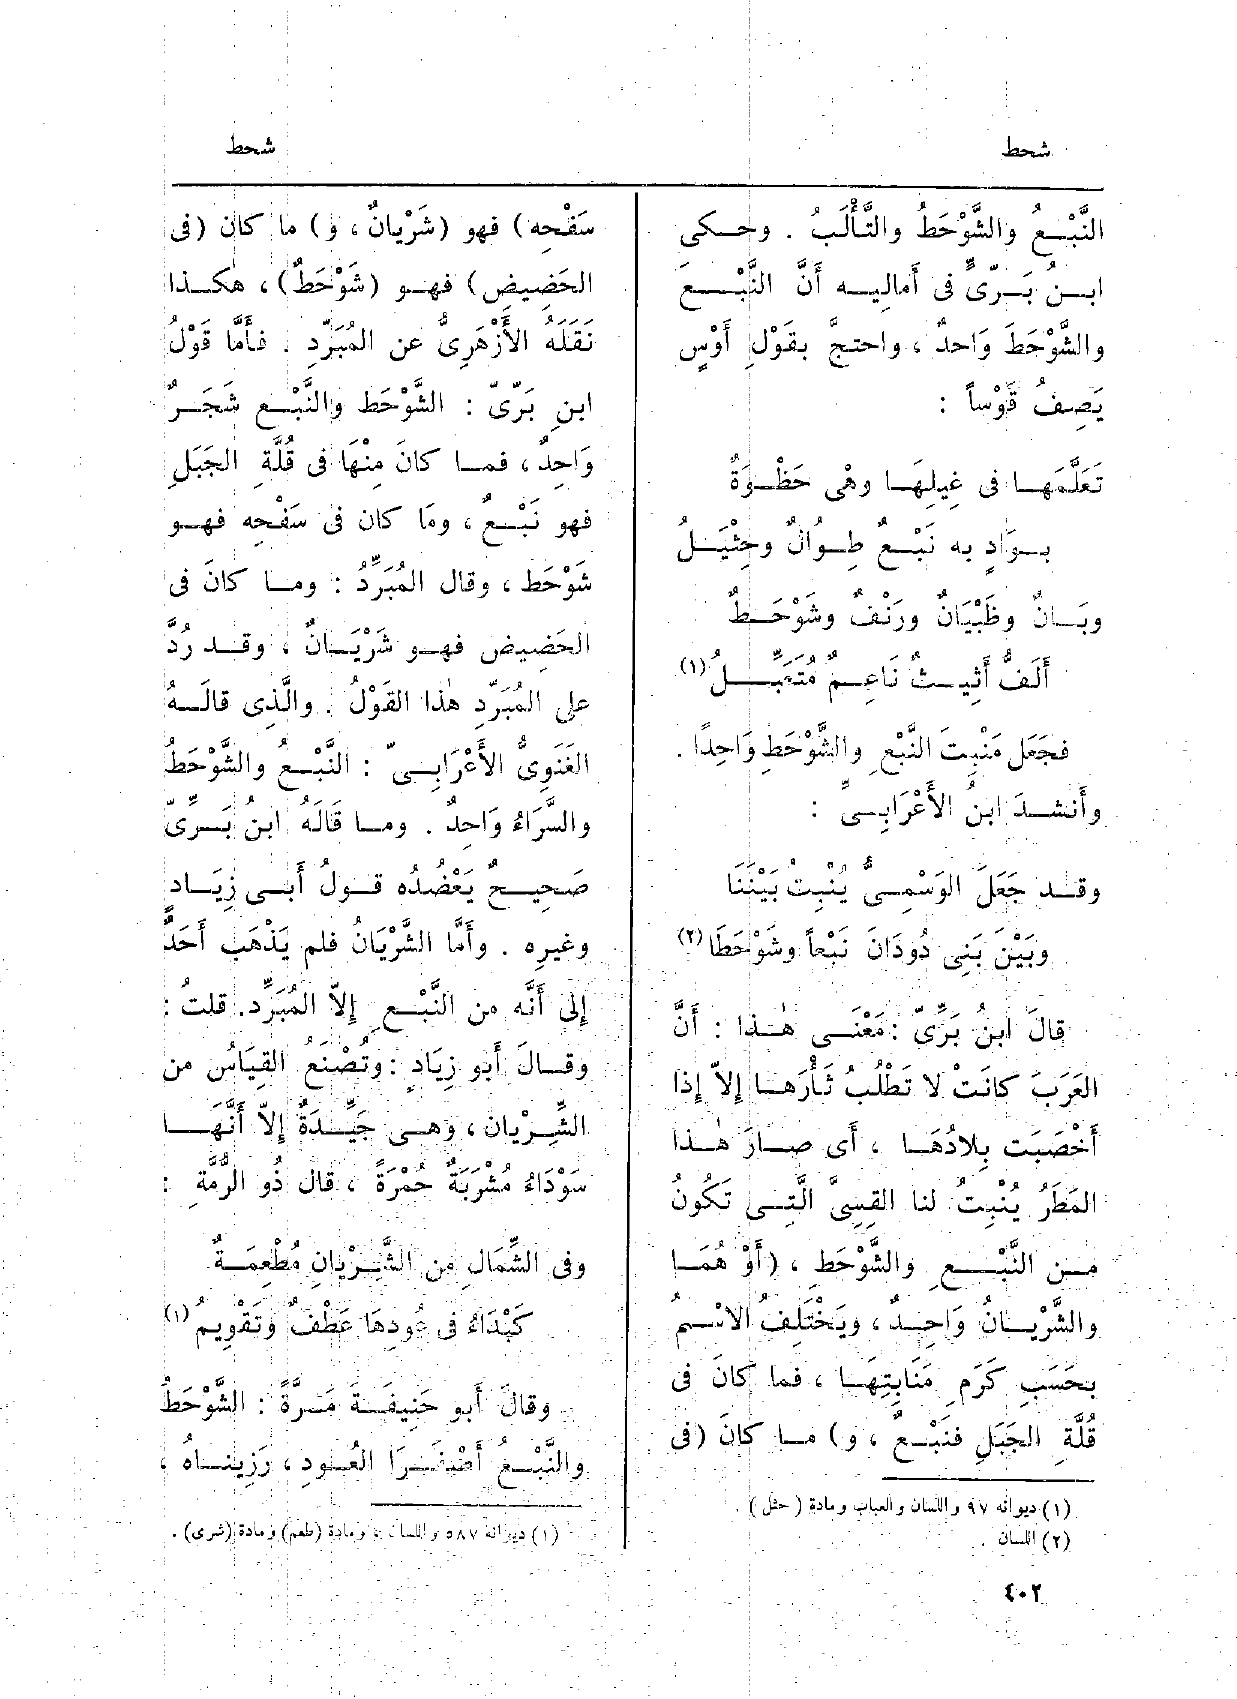 شحط
شحط
النَّبْـــعُ والشَّوْحَطُ والتَّأْلَبُ . وحــكى
ابــنُ بَــرِّىٍّ فى أَماليــه أَنَّ النَّبْــــعَ
والشَّوْحَطَ وَاحدٌ ، واحتجَّ بقَوْلِ أَوْسٍ
يَصِفُ قَوْساً :
تَعَلَّمَهــا فى غِيلِهَــا وهْى حَظْــوَةٌ
بــوَادٍ به نَبْــعٌ طِــوَالٌ وحِثْيَــلُ
وبَــانٌ وظَبْيَانٌ ورَنْفٌ وشَوْحَــطٌ
أَلَفُّ أَثِيــثٌ نَاعِــمٌ مُتَعَبِّــــلُ (١)
فجَعَل مَنْبِتَ النَّبْعِ والشَّوْحَطِ وَاحِدًا .
وأَنشــدَ ابنُ الأَعْرَابِــىِّ :
وقــد جَعَلَ الوَسْمِــىُّ يُنْبِتُ بَيْنَنَا
وبَيْنَ بَنِى دُودَانَ نَبْعاً وشَوْحَطَا (٢)
قالَ ابنُ بَرِّىّ : مَعْنَــى هٰــذا : أَنَّ
العَرَبَ كانَتْ لا تَطْلُبُ ثَأْرَهــا إِلاّ إِذا
أَخْصَبَت بِلادُهَــا ، أَى صــارَ هٰــذا
المَطَرُ يُنْبِتُ لنا القِسِىَّ الَّتِــى تَكُونُ
مــن النَّبْــــعِ والشَّوْحَطِ ، (أَوْ هُمَــا
والشَّرْيــانُ وَاحِــدٌ ، ويَخْتَلِفُ الاسْــمُ
بحَسَبِ كَرَمِ مَنَابِتِهَــا ، فما كانَ فى
قُلَّةِ الجَبَلِ فنَبْــعٌ ، و) مــا كانَ (فى
(١) ديوانه ٩٧ واللسان والعباب ومادة (حثل) .
(٢) اللسان .
٤٠٢
سَفْحِه) فهو (شَرْيانٌ ، و) ما كان (فى
الحَضِيضِ) فهــو (شَوْحَطٌ) ، هٰكــذا
نَقَلَهُ الأَزْهَرِىُّ عن المُبَرِّدِ . فأَمَّا قَوْلُ
ابنِ بَرِّىّ : الشَّوْحَط والنَّبْــع شَجَــرٌ
وَاحِدٌ ، فمــا كانَ مِنْهَا فى قُلَّةِ الجَبَلِ
فهو نَبْــعٌ ، ومَا كان فى سَفْحِه فهــو
شَوْحَط ، وقال المُبَرِّدُ : ومــا كانَ فى
الحَضِيض فهــو شَرْيَــانٌ ، وقــد رُدَّ
على المُبَرِّدِ هٰذا القَوْلُ . والَّذِى قالَــهُ
الغَنَوِىُّ الأَعْرَابِــىّ : النَّبْــعُ والشَّوْحَطُ
والسَّرَاءُ وَاحِدٌ . ومــا قالَهُ ابنُ بَــرِّىّ
صَحِيــحٌ يَعْضُدُه قــولُ أَبــى زِيَــادٍ
وغيرِه . وأَمَّا الشَّرْيَانُ فلم يَذْهَب أَحَدٌ
إِلى أَنَّه من النَّبْــعِ إِلاّ المُبَرِّد. قلتُ :
وقــالَ أَبو زِيَادٍ : وتُصْنَعُ القِيَاسُ من
الشَّــرْيان ، وَهــى جَيِّــدَةٌ إِلاّ أَنَّهَــا
سَوْدَاءُ مُشْرَبَةٌ حُمْرَةً ، قال ذُو الرُّمَّةِ :
وفى الشِّمَالِ من الشَّــرْيانِ مُطْعِمَــةٌ
كَبْدَاءُ فى عُودِهَا عَطْفٌ وتَقْوِيمُ (١)
وقالَ أَبو حَنِيفَــةَ مَــرَّةً : الشَّوْحَطُ
والنَّبْــعُ أَصْفَــرَا العُــودِ ، رَزِينــاهُ ،
(١) ديوانه ٥٨٧ واللسان ، ومادة (طعم) ومادة (شرى) .